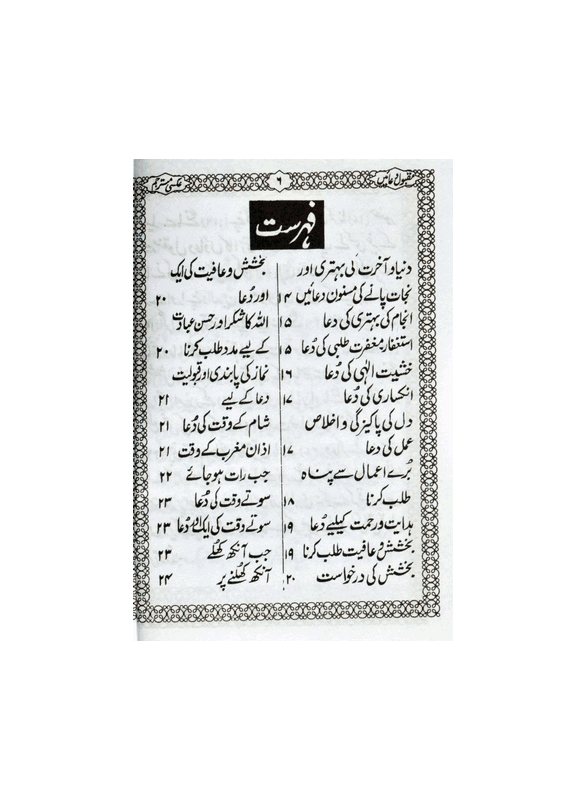 مقبول دعائیں
٦
عکسی مترجم
فہرست
دنیا و آخرت کی بہتری اور
نجات پانے کی مسنون دعائیں ۱۴
انجام کی بہتری کی دعا ۱۵
استغفار مغفرت طلبی کی دُعا ۱۵
خشیت الٰہی کی دُعا ۱۶
انکساری کی دُعا ۱۷
دل کی پاکیزگی و اخلاص
عمل کی دعا ۱۷
بُرے اعمال سے پناہ
طلب کرنا ۱۸
ہدایت و رحمت کیلیے دُعا ۱۹
بخشش و عافیت طلب کرنا ۱۹
بخشش کی درخواست ۲۰
بخشش و عافیت کی ایک
اور دُعا ۲۰
اللہ کا شکر اور حسن عبادت
کے لیے مدد طلب کرنا ۲۰
نماز کی پابندی اور قبولیت
دعا کے لیے ۲۱
شام کے وقت کی دُعا ۲۱
اذان مغرب کے وقت ۲۱
جب رات ہو جائے ۲۲
سوتے وقت کی دُعا ۲۳
سوتے وقت کی ایک اور دُعا ۲۳
جب آنکھ کھلے ۲۳
آنکھ کھلنے پر ۲۴